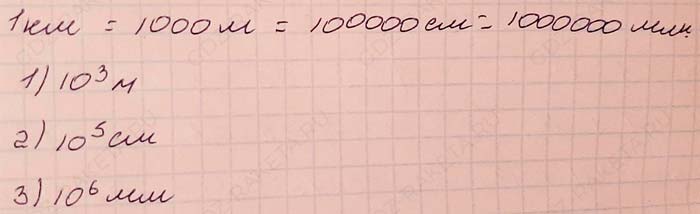 1км = 1000 м = 100000 см = 1000000 мм
1) 10³ м
2) 10⁵ см
3) 10⁶ мм